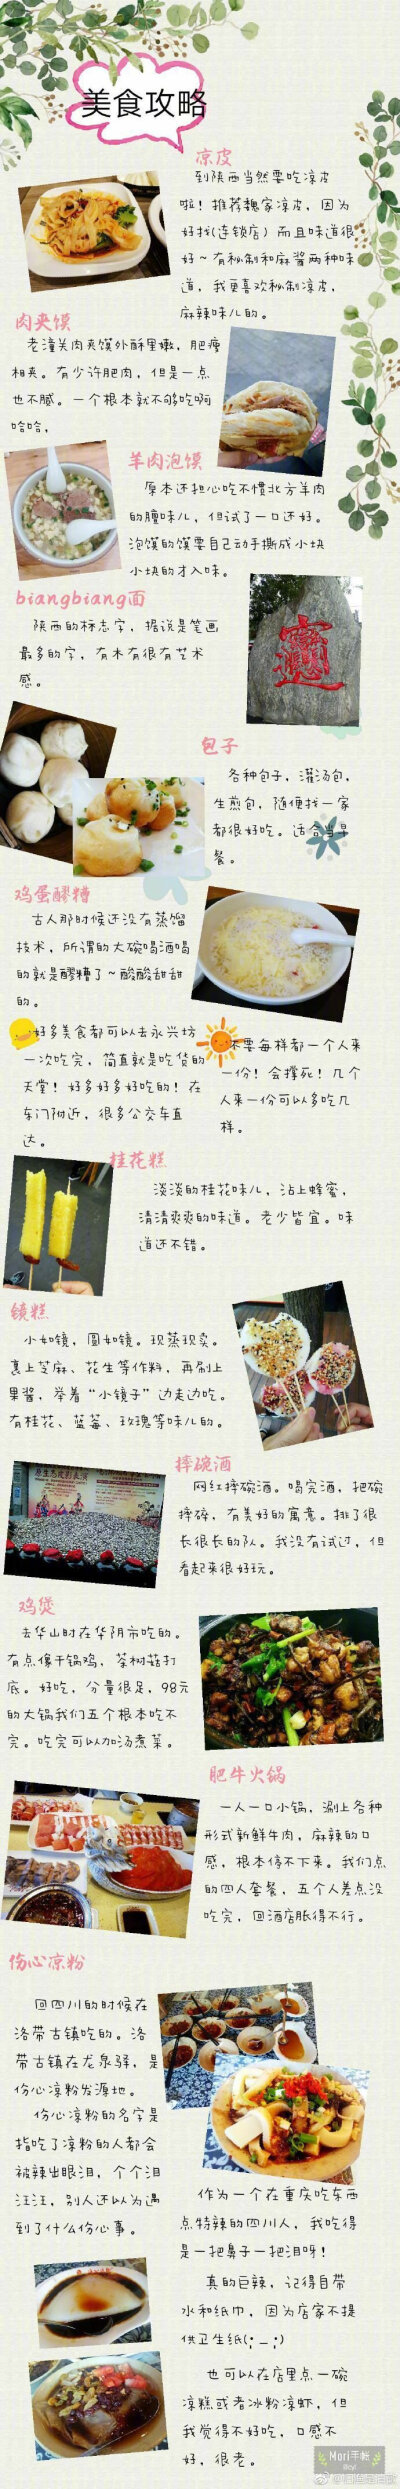 美食攻略
凉皮
到陕西当然要吃凉皮
啦！推荐魏家凉皮，因为
好找(连锁店）而且味道很
好~有秘制和麻酱两种味
道，我更喜欢秘制凉皮，
麻辣味儿的。
肉夹馍
老潼关肉夹馍外酥里嫩，肥瘦
相夹。有少许肥肉，但是一点
也不腻。一个根本就不够吃啊
哈哈，
羊肉泡馍
原本还担心吃不惯北方羊肉
的膻味儿，但试了一口还好。
泡馍的馍要自己动手撕成小块
小块的才入味。
biangbiang面
陕西的标志字，据说是笔画
最多的字，有木有很有艺术
感。
包子
各种包子，灌汤包，
生煎包，随便找一家
都很好吃。适合当早
餐。
鸡蛋醪糟
古人那时候还没有蒸馏
技术，所谓的大碗喝酒喝
的就是醪糟了~酸酸甜甜
的。
好多美食都可以去永兴坊
一次吃完，简直就是吃货的
天堂！好多好多好吃的！在
东门附近，很多公交车直
达。
不要每样都一个人来
一份！会撑死！几个
人来一份可以多吃几
样。
桂花糕
淡淡的桂花味儿，沾上蜂蜜，
清清爽爽的味道。老少皆宜。味
道还不错。
镜糕
小如镜，圆如镜。现蒸现卖。
裹上芝麻、花生等作料，再刷上
果酱，举着“小镜子”边走边吃。
有桂花、蓝莓、玫瑰等味儿的。
摔碗酒
网红摔碗酒。喝完酒，把碗
摔碎，有美好的寓意。排了很
长很长的队。我没有试过，但
看起来很好玩。
鸡煲
去华山时在华阴市吃的。
有点像干锅鸡，茶树菇打
底。好吃，分量很足，98元
的大锅我们五个根本吃不
完。吃完可以加汤煮菜。
肥牛火锅
一人一口小锅，涮上各种
形式新鲜牛肉，麻辣的口
感，根本停不下来。我们点
的四人套餐，五个人差点没
吃完，回酒店胀得不行。
伤心凉粉
回四川的时候在
洛带古镇吃的。洛
带古镇在龙泉驿，是
伤心凉粉发源地。
伤心凉粉的名字是
指吃了凉粉的人都会
被辣出眼泪，个个泪
汪汪，别人还以为遇
到了什么伤心事。
作为一个在重庆吃东西
点特辣的四川人，我吃得
是一把鼻子一把泪呀！
真的巨辣，记得自带
水和纸巾，因为店家不提
供卫生纸(;_;)
也可以在店里点一碗
凉糕或者冰粉凉虾，但
我觉得不好吃，口感不
好，很老。
Mori手帐
@cyl